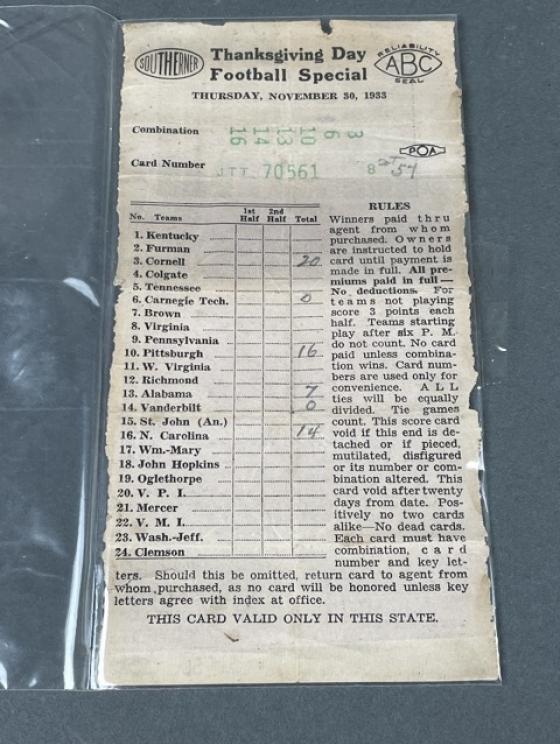 SOUTHERNER
Thanksgiving Day
Football Special
RELIABILITY
ABC
SEAL
THURSDAY, NOVEMBER 30, 1933
Combination
16 14 13 10 6 3
POA
Card Number
70561
8
54
No. Teams 1st Half 2nd Half Total
1. Kentucky
2. Furman
3. Cornell 20
4. Colgate
5. Tennessee
6. Carnegie Tech. 0
7. Brown
8. Virginia
9. Pennsylvania
10. Pittsburgh 16
11. W. Virginia
12. Richmond
13. Alabama 7
14. Vanderbilt 0
15. St. John (An.)
16. N. Carolina 14
17. Wm.-Mary
18. John Hopkins
19. Oglethorpe
20. V. P. I.
21. Mercer
22. V. M. I.
23. Wash.-Jeff.
24. Clemson
RULES
Winners paid thru
agent from whom
purchased. Owners
are instructed to hold
card until payment is
made in full. All pre-
miums paid in full—
No deductions. For
teams not playing
score 3 points each
half. Teams starting
play after six P. M.
do not count. No card
paid unless combina-
tion wins. Card num-
bers are used only for
convenience. ALL
ties will be equally
divided. Tie games
count. This score card
void if this end is de-
tached or if pieced,
mutilated, disfigured
or its number or com-
bination altered. This
card void after twenty
days from date. Pos-
itively no two cards
alike—No dead cards.
Each card must have
combination, card
number and key let-
ters. Should this be omitted, return card to agent from
whom purchased, as no card will be honored unless key
letters agree with index at office.
THIS CARD VALID ONLY IN THIS STATE.